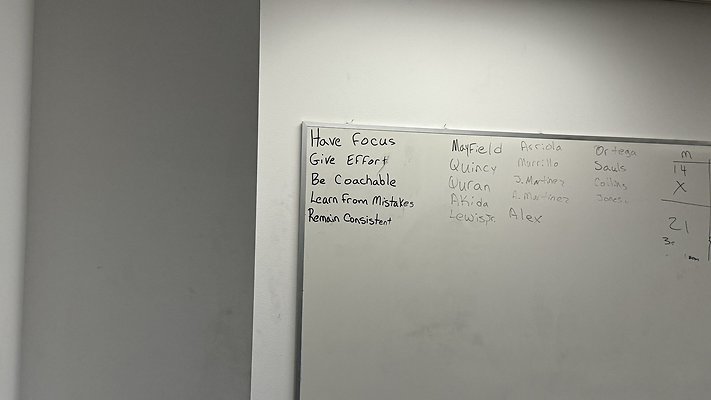 Have Focus
Give Effort
Be Coachable
Learn From Mistakes
Remain Consistent
Mayfield
Quincy
Quran
Akida
Lewis
Arriola
Murcillo
J. Martinez
A. Martinez
Alex
Ortega
Sauls
Collins
Jones
m
14
X
21